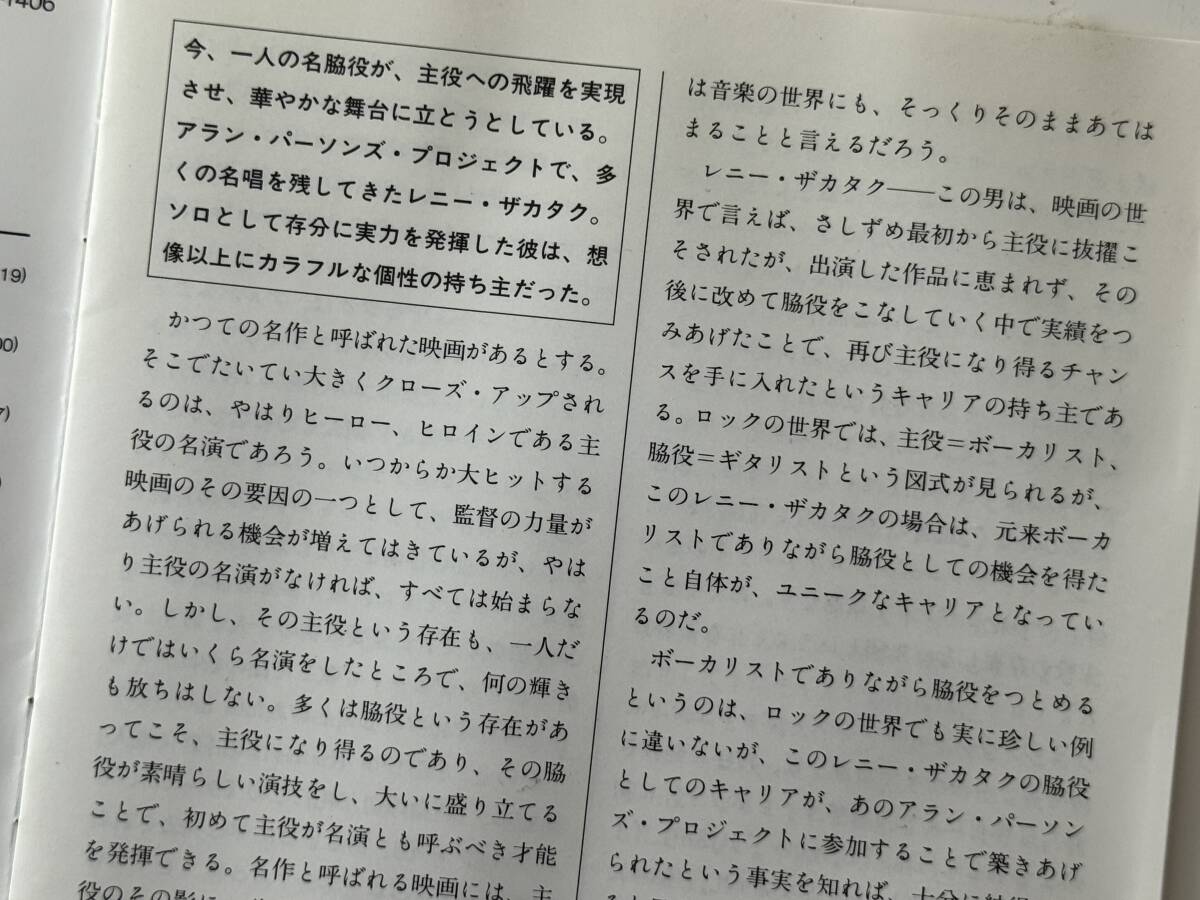 1406
19)
00)
7)
)
今、一人の名脇役が、主役への飛躍を実現
させ、華やかな舞台に立とうとしている。
アラン・パーソンズ・プロジェクトで、多
くの名唱を残してきたレニー・ザカタク。
ソロとして存分に実力を発揮した彼は、想
像以上にカラフルな個性の持ち主だった。
かつての名作と呼ばれた映画があるとする。
そこでたいてい大きくクローズ・アップされ
るのは、やはりヒーロー、ヒロインである主
役の名演であろう。いつからか大ヒットする
映画のその要因の一つとして、監督の力量が
あげられる機会が増えてはきているが、やは
り主役の名演がなければ、すべては始まらな
い。しかし、その主役という存在も、一人だ
けではいくら名演をしたところで、何の輝き
も放ちはしない。多くは脇役という存在があ
ってこそ、主役になり得るのであり、その脇
役が素晴らしい演技をし、大いに盛り立てる
ことで、初めて主役が名演とも呼ぶべき才能
を発揮できる。名作と呼ばれる映画には、主
役のその影に、
は音楽の世界にも、そっくりそのままあては
まることと言えるだろう。
レニー・ザカタク――この男は、映画の世
界で言えば、さしずめ最初から主役に抜擢こ
そされたが、出演した作品に恵まれず、その
後に改めて脇役をこなしていく中で実績をつ
みあげたことで、再び主役になり得るチャン
スを手に入れたというキャリアの持ち主であ
る。ロックの世界では、主役＝ボーカリスト、
脇役＝ギタリストという図式が見られるが、
このレニー・ザカタクの場合は、元来ボーカ
リストでありながら脇役としての機会を得た
こと自体が、ユニークなキャリアとなってい
るのだ。
ボーカリストでありながら脇役をつとめる
というのは、ロックの世界でも実に珍しい例
に違いないが、このレニー・ザカタクの脇役
としてのキャリアが、あのアラン・パーソン
ズ・プロジェクトに参加することで築きあげ
られたという事実を知れば、十分に